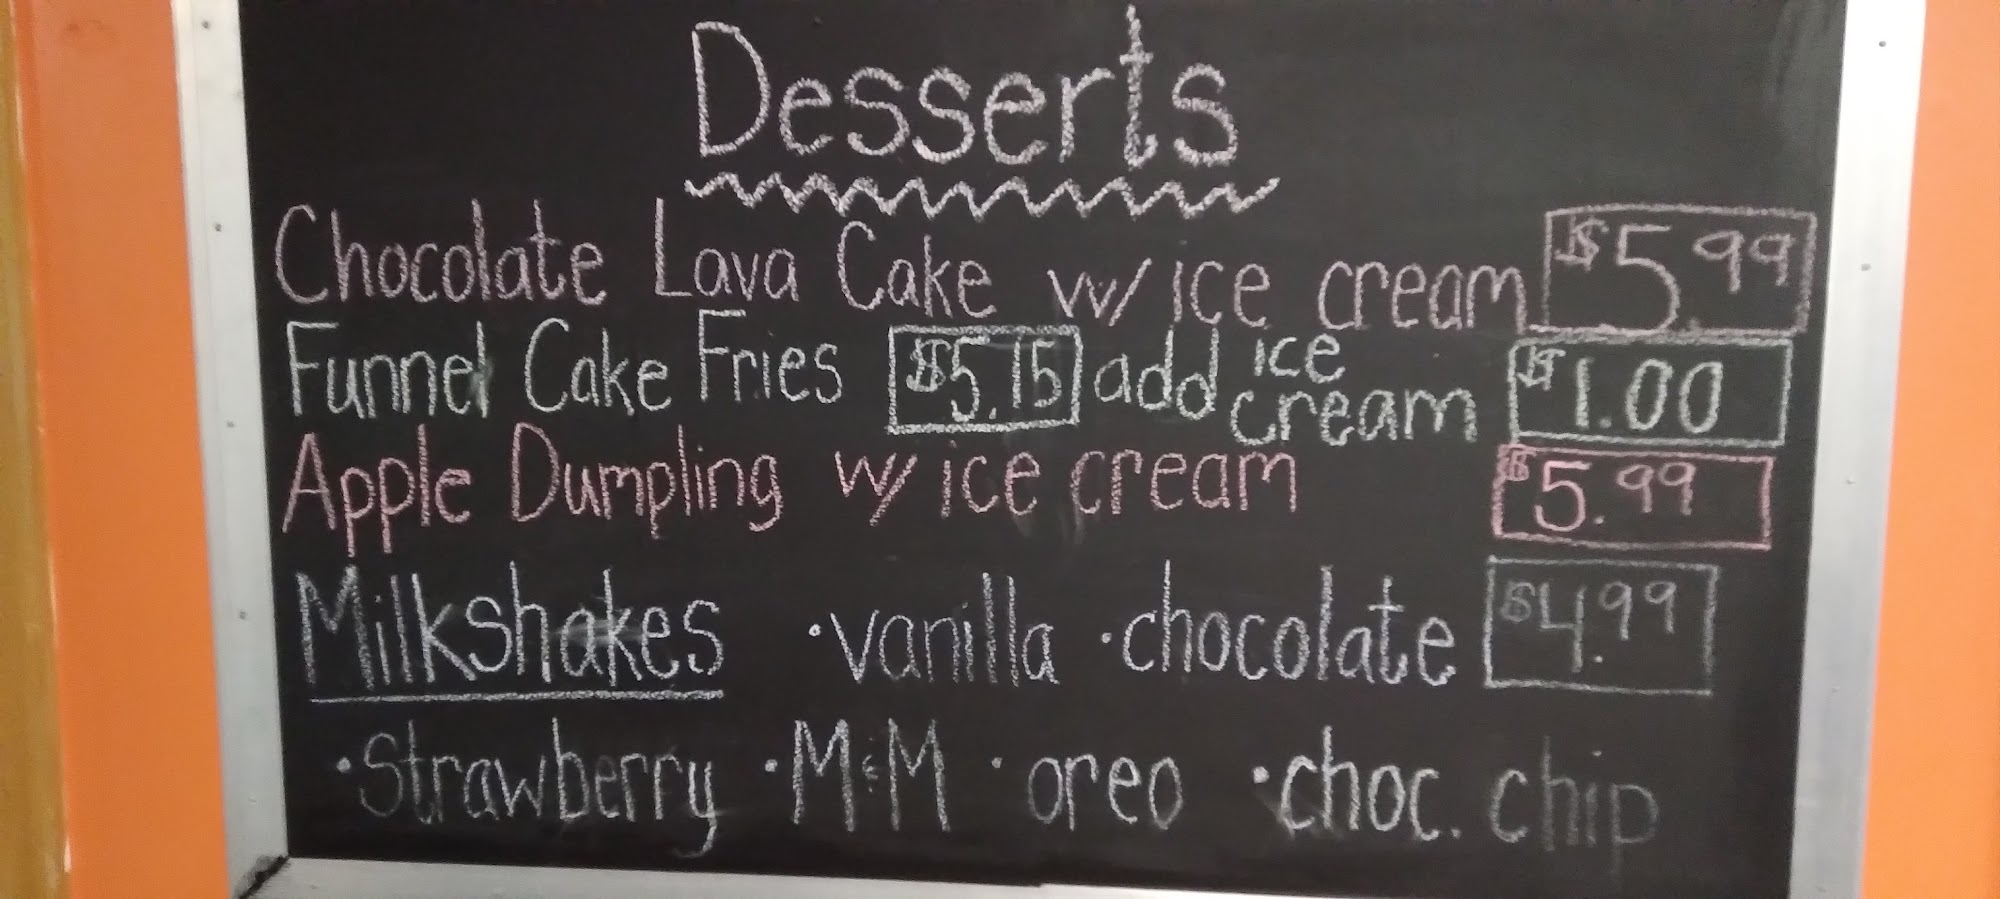 Desserts
Chocolate Lava Cake w/ ice cream $5.99
Funnel Cake Fries $5.15 add ice cream $1.00
Apple Dumpling w/ ice cream $5.99
Milkshakes •vanilla •chocolate $4.99
•Strawberry •M&M •oreo •choc. chip